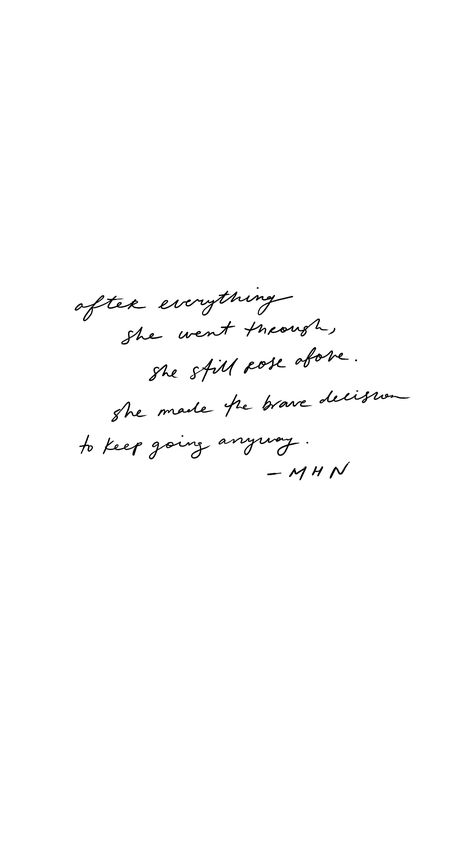 after everything
she went through,
she still rose above.
she made the brave decision
to keep going anyway.
— MHN